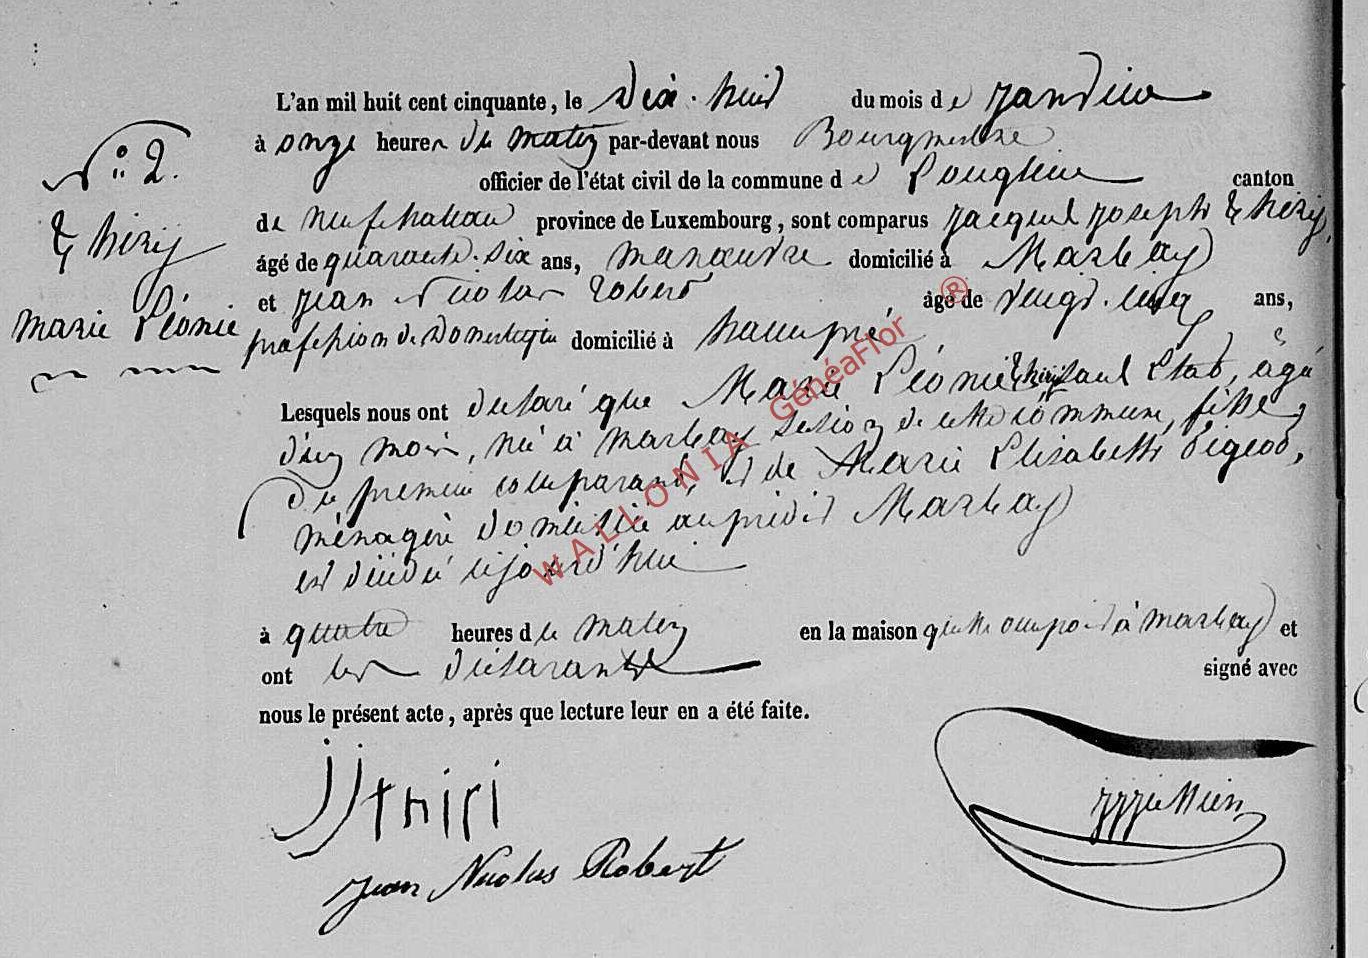 L'an mil huit cent cinquante, le dix-huit du mois de Janvier
à onze heures du matin par-devant nous Bourgmestre
N° 2.
officier de l'état civil de la commune de Longlier canton
de neufchateau province de Luxembourg, sont comparus Jacques Joseph Thiry,
Thiry
âgé de quarante-six ans, manœuvre domicilié à Marbay
et Jean Nicolas Robert âgé de vingt-cinq ans,
Marie Léonie
profession de Domestique domicilié à hamipré
Lesquels nous ont déclaré que Marie Léonie Thiry sans Etat, âgé
d'un mois, né à marbay section de cette commune, fille
du premier comparant, et de Marie Elisabeth Pigeod,
ménagère domicilié au prédit Marbay
est décédé cejourd'hui
à quatre heures du matin en la maison qu'elle occupoit à marbay et
ont les déclarants signé avec
nous le présent acte, après que lecture leur en a été faite.
JJ Thiri
Jean Nicolas Robert
WALLONIA GénéaFlor ®